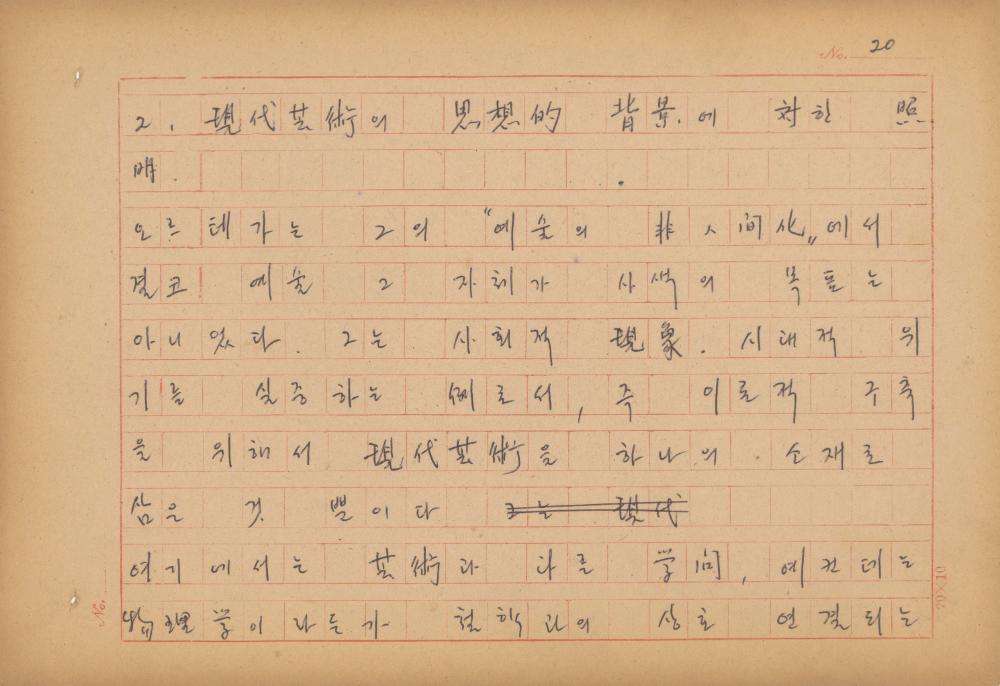 No. 20
2. 現代芸術의 思想的 背景에 対한 照
明.
오르테가는 그의 "예술의 非人间化"에서
결코 예술 그 자체가 사색의 목표는
아니었다. 그는 사회적 現象. 시대적 위
기를 실증하는 例로서, 즉 이론적 구축
을 위해서 現代芸術을 하나의 소재로
삼은 것 뿐이다 그는 現代
여기에서는 芸術과 다른 学问, 예컨데는
物理学이라든가 철학과의 상호 연결되는
No.
20×10